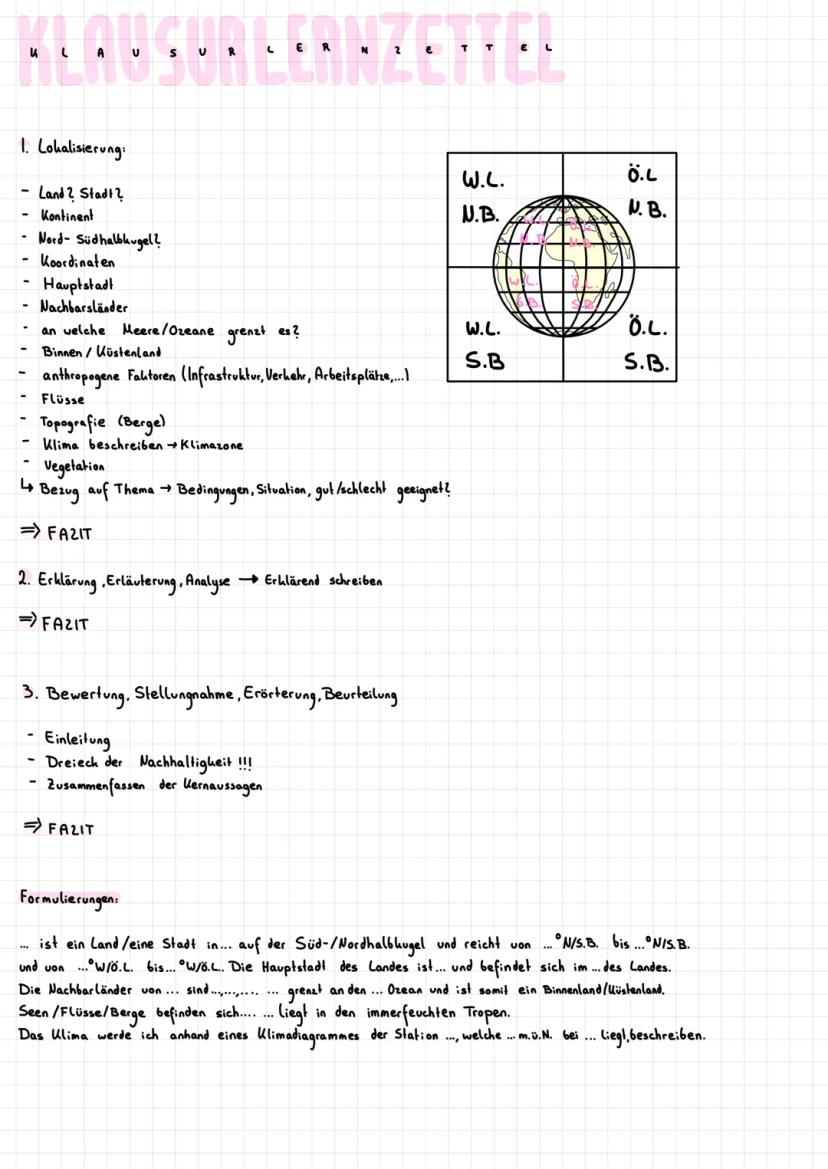 KLAUSURLERNZETTEL
KLAUSURLERNZETTEL
1. Lokalisierung:
- Land? Stadt?
- Kontinent
- Nord- Südhalbkugel?
- Koordinaten
- Hauptstadt
- Nachbarsländer
- an welche Meere/Ozeane grenzt es?
- Binnen / Küstenland
- anthropogene Faktoren (Infrastruktur, Verkehr, Arbeitsplätze,...)
- Flüsse
- Topografie (Berge)
- Klima beschreiben → Klimazone
- Vegetation
↳ Bezug auf Thema → Bedingungen, Situation, gut/schlecht geeignet?
⇒ FAZIT
W.L.
N.B.
Ö.L
N.B.
W.L.
N.B.
Ö.L.
N.B.
W.L.
S.B.
Ö.L.
S.B.
W.L.
S.B
Ö.L.
S.B.
2. Erklärung, Erläuterung, Analyse → Erklärend schreiben
⇒ FAZIT
3. Bewertung, Stellungnahme, Erörterung, Beurteilung
- Einleitung
- Dreieck der Nachhaltigkeit !!!
- Zusammenfassen der Kernaussagen
⇒ FAZIT
Formulierungen:
... ist ein Land/eine Stadt in... auf der Süd-/Nordhalbkugel und reicht von ...°N/S.B. bis ...°N/S.B.
und von ...°W/Ö.L. bis...°W/Ö.L. Die Hauptstadt des Landes ist... und befindet sich im ... des Landes.
Die Nachbarländer von ... sind...,...,.... ... grenzt an den ... Ozean und ist somit ein Binnenland/Küstenland.
Seen/Flüsse/Berge befinden sich.... ... liegt in den immerfeuchten Tropen.
Das Klima werde ich anhand eines Klimadiagrammes der Station ..., welche ... m.ü.N. bei ... liegt, beschreiben.